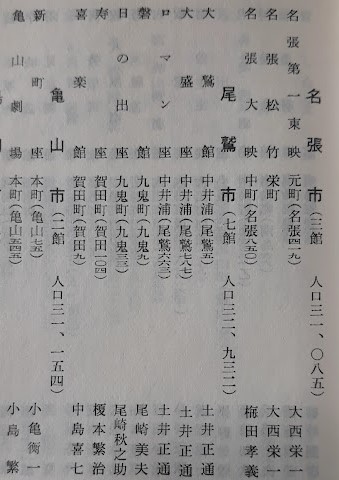 名張市(三館 人口三一、〇八五)
名張第一東映 元町(名張四一九) 大西栄一
名張松竹 栄町 大西栄一
名張大映 中町(名張八五〇) 梅田孝義
尾鷲市(七館 人口三二、九三二)
大鷲館 中井浦(尾鷲五) 土井正通
大盛座 中井浦(尾鷲七八七) 土井正通
ロマン座 中井浦(尾鷲六六三) 土井正通
磐館 九鬼町(九鬼九) 尾崎美夫
日の出座 九鬼町(九鬼三三) 尾崎秋之助
寿座 賀田町(賀田一〇四) 榎本繁治
喜楽館 賀田町(賀田九) 中島喜七
亀山市(二館 人口三一、一五四)
新町座 本町(亀山七五) 小亀衡一
亀山劇場 本町(亀山五四五) 小島繁